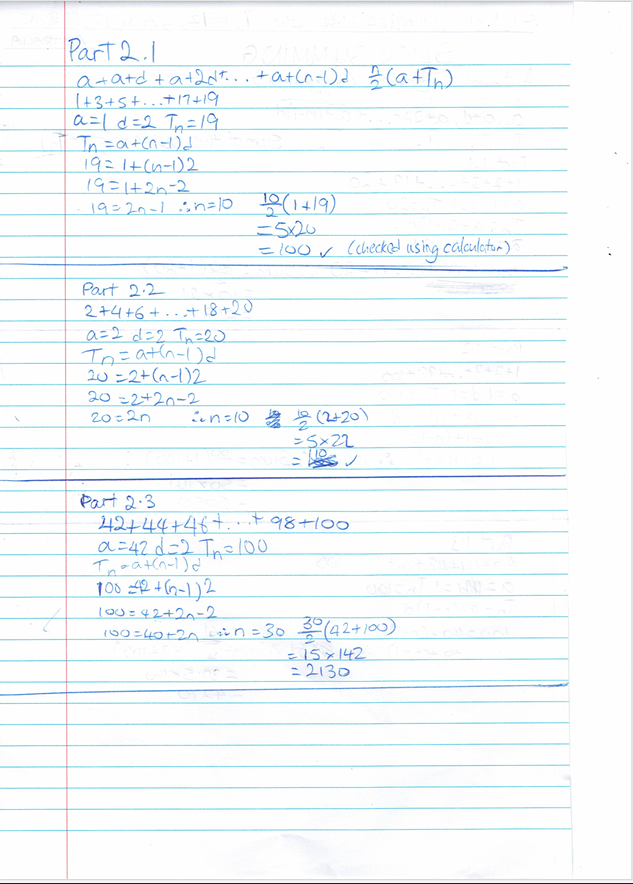 Part 2.1
a+a+d + a+2d+... + a+(n-1)d n/2(a+Tn)
1+3+5+...+17+19
a=1 d=2 Tn=19
Tn=a+(n-1)d
19=1+(n-1)2
19=1+2n-2
19=2n-1 ∴n=10 10/2(1+19)
=5×20
=100 ✓ (checked using calculator)
Part 2.2
2+4+6+...+18+20
a=2 d=2 Tn=20
Tn=a+(n-1)d
20=2+(n-1)2
20=2+2n-2
20=2n ∴n=10 10/2(2+20)
=5×22
=110 ✓
Part 2.3
42+44+46+...+98+100
a=42 d=2 Tn=100
Tn=a+(n-1)d
100=42+(n-1)2
100=42+2n-2
100=40+2n ∴n=30 30/2(42+100)
=15×142
=2130